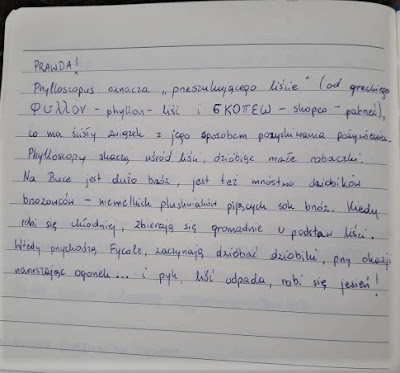 PRAWDA!
Phylloscopus oznacza „przeszukującego liście" (od greckiego
φυλλον - phyllon - liść i σκοπεω - skopeo - patrzeć),
co ma ścisły związek z jego sposobem pozyskiwania pożywienia.
Phylloscopy skaczą wśród liści, dziobiąc małe robaczki.
Na Buce jest dużo brzóz, jest też mnóstwo dziobików
brzozowców - niewielkich pluskwiaków pijących sok brzóz. Kiedy
robi się chłodniej, zbierają się gromadnie u podstaw liści.
Wtedy przychodzą Fycote, zaczynają dziobać dziobiki, przy okazji
naruszając ogonek... i pyk, liść odpada, robi się jesień!